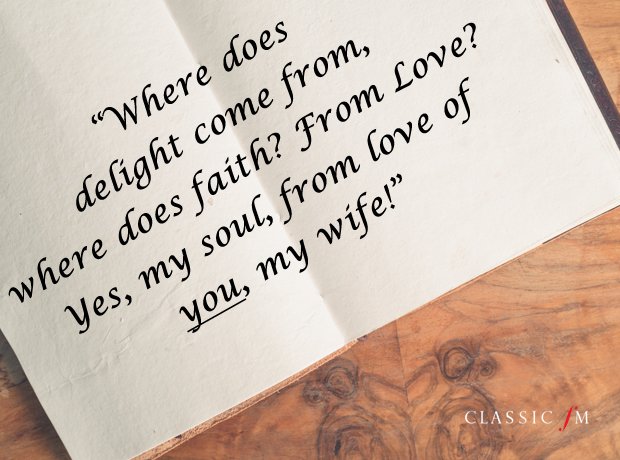 “Where does
delight come from,
where does faith? From Love?
Yes, my soul, from love of
you, my wife!”
CLASSIC fM